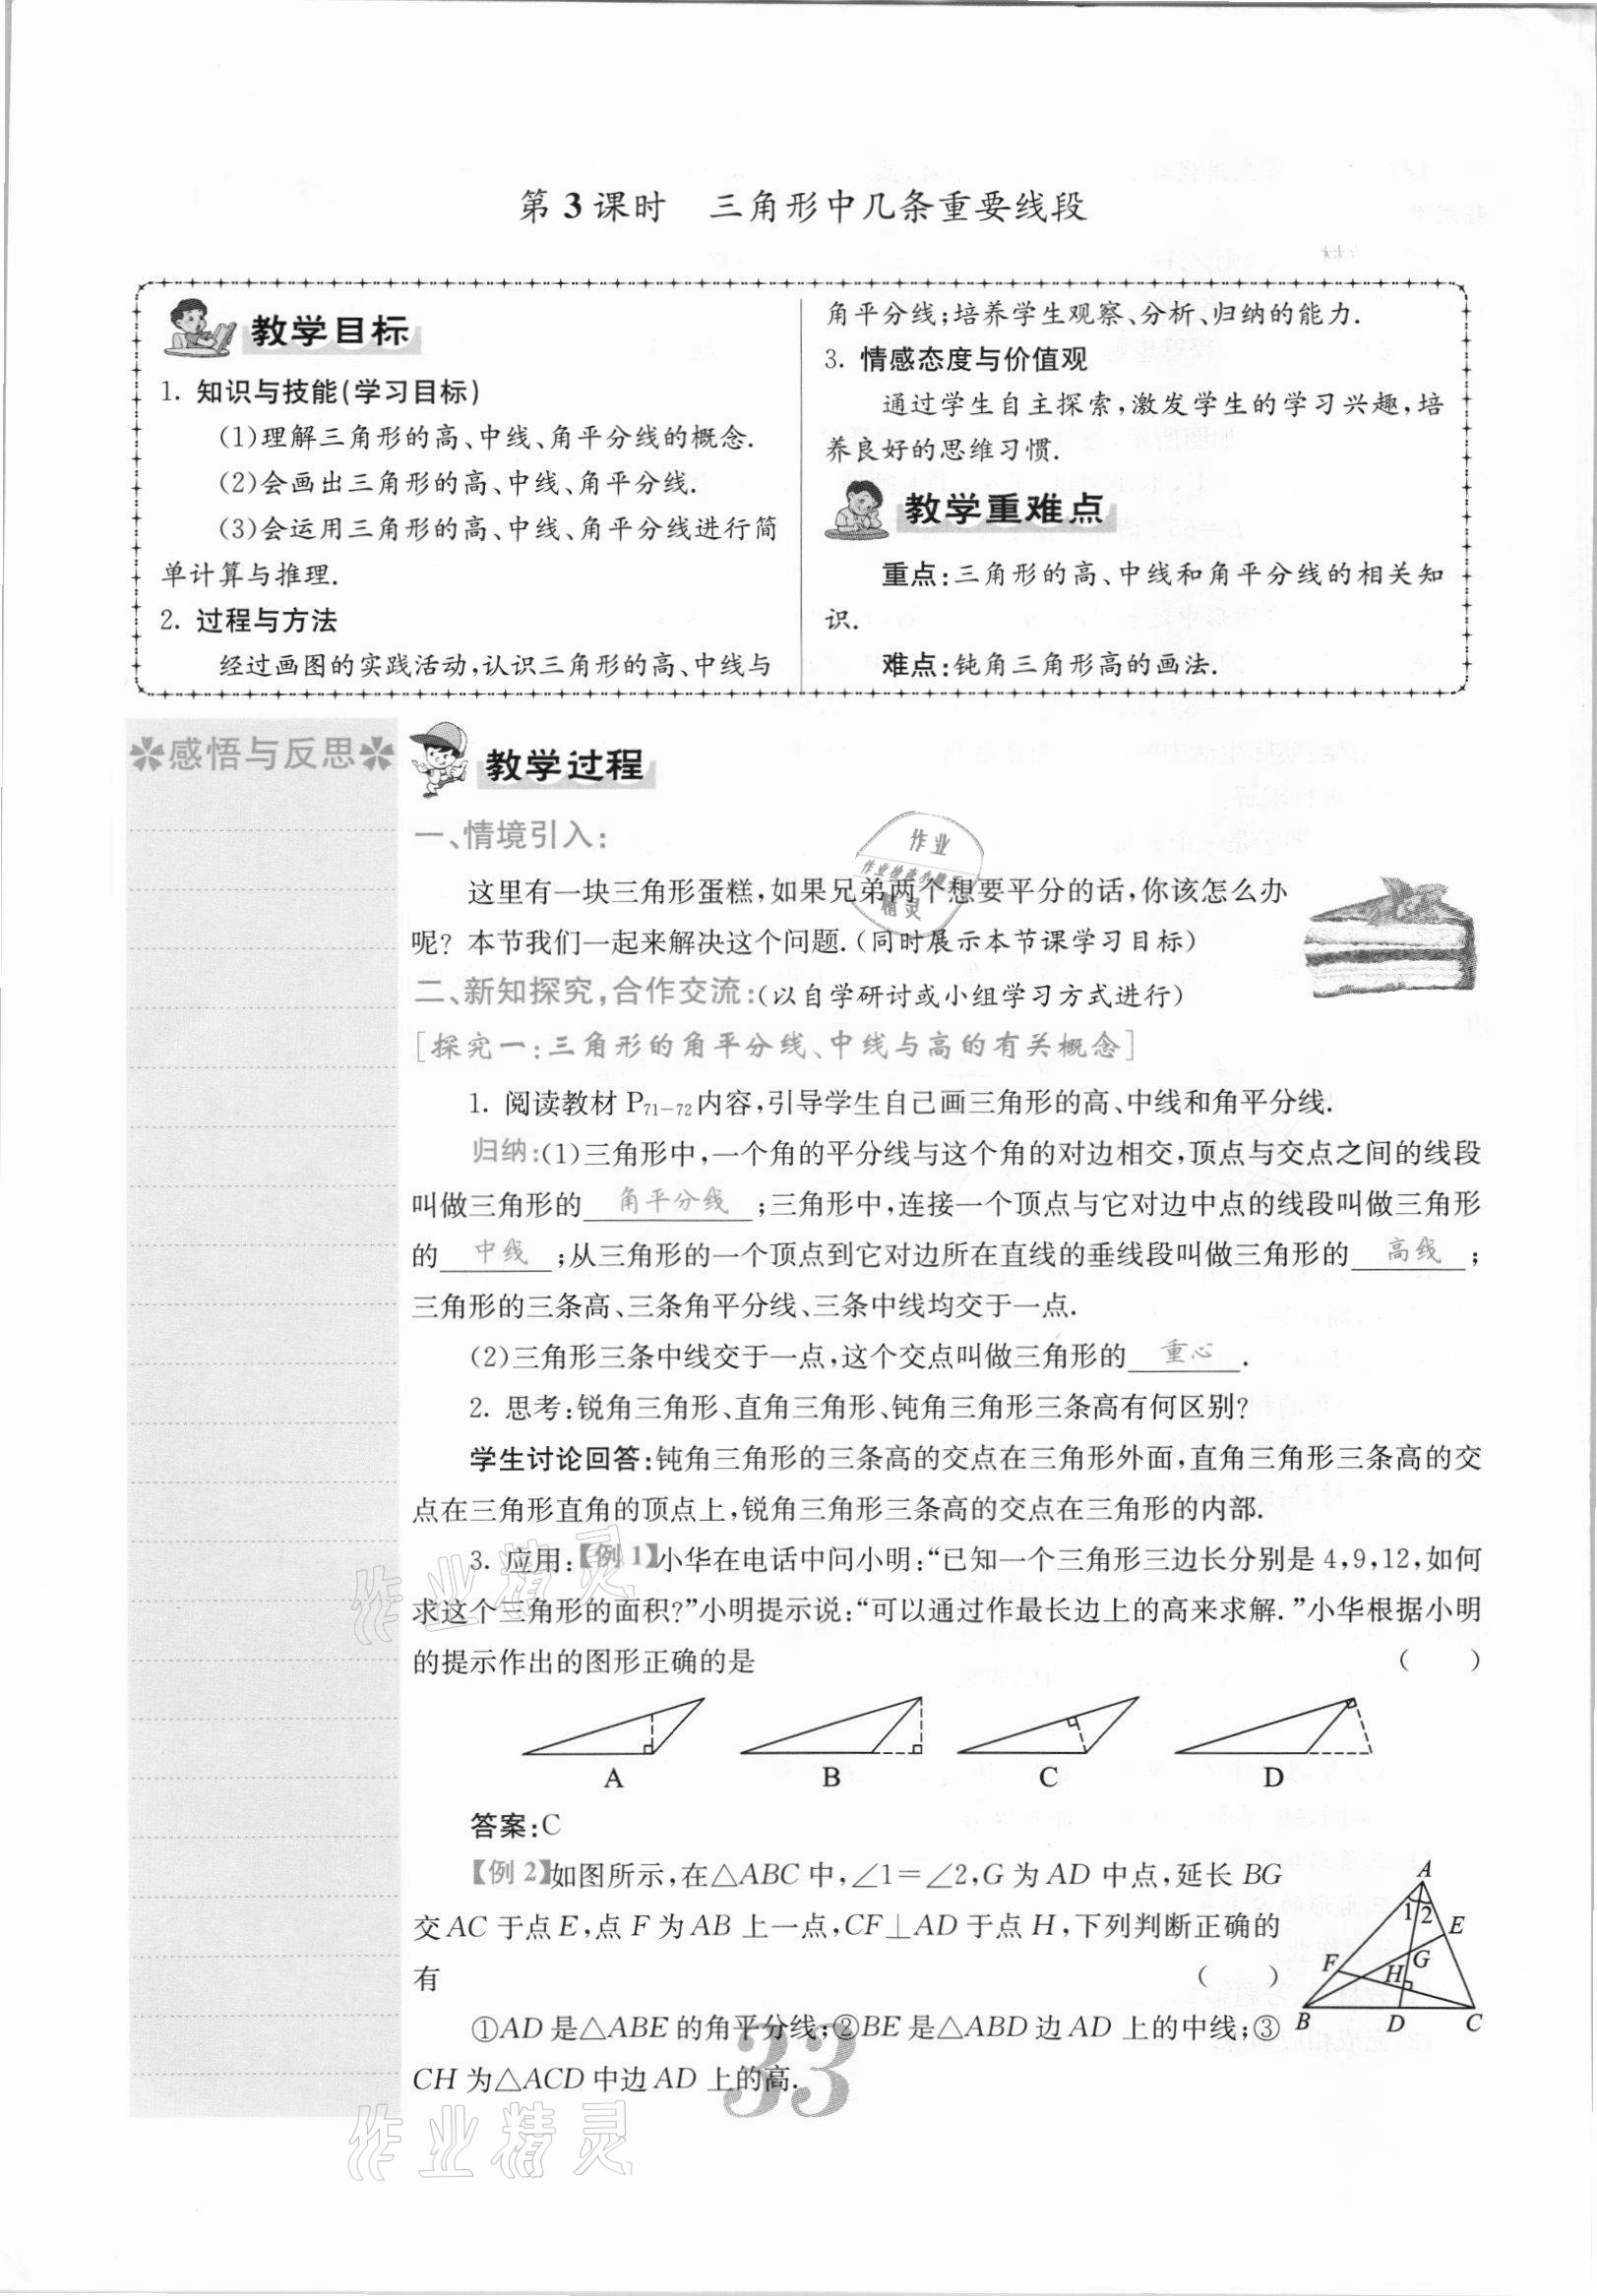 第3课时　三角形中几条重要线段
教学目标
1. 知识与技能(学习目标)
(1)理解三角形的高、中线、角平分线的概念.
(2)会画出三角形的高、中线、角平分线.
(3)会运用三角形的高、中线、角平分线进行简
单计算与推理.
2. 过程与方法
经过画图的实践活动,认识三角形的高、中线与
角平分线;培养学生观察、分析、归纳的能力.
3. 情感态度与价值观
通过学生自主探索,激发学生的学习兴趣,培
养良好的思维习惯.
教学重难点
重点:三角形的高、中线和角平分线的相关知
识.
难点:钝角三角形高的画法.
感悟与反思
教学过程
一、情境引入:
这里有一块三角形蛋糕,如果兄弟两个想要平分的话,你该怎么办
呢? 本节我们一起来解决这个问题.(同时展示本节课学习目标)
二、新知探究,合作交流:(以自学研讨或小组学习方式进行)
[探究一:三角形的角平分线、中线与高的有关概念]
1. 阅读教材 P71-72内容,引导学生自己画三角形的高、中线和角平分线.
归纳:(1)三角形中,一个角的平分线与这个角的对边相交,顶点与交点之间的线段
叫做三角形的 角平分线 ;三角形中,连接一个顶点与它对边中点的线段叫做三角形
的 中线 ;从三角形的一个顶点到它对边所在直线的垂线段叫做三角形的 高线 ;
三角形的三条高、三条角平分线、三条中线均交于一点.
(2)三角形三条中线交于一点,这个交点叫做三角形的 重心 .
2. 思考:锐角三角形、直角三角形、钝角三角形三条高有何区别?
学生讨论回答:钝角三角形的三条高的交点在三角形外面,直角三角形三条高的交
点在三角形直角的顶点上,锐角三角形三条高的交点在三角形的内部.
3. 应用:【例1】小华在电话中问小明:“已知一个三角形三边长分别是 4,9,12,如何
求这个三角形的面积?”小明提示说:“可以通过作最长边上的高来求解.”小华根据小明
的提示作出的图形正确的是 (　　)
A B C D
答案:C
【例2】如图所示,在△ABC 中,∠1=∠2,G 为 AD 中点,延长 BG
交 AC 于点 E,点 F 为 AB 上一点,CF⊥AD 于点 H,下列判断正确的
有 (　　)
①AD 是△ABE 的角平分线;②BE 是△ABD 边 AD 上的中线;③
CH 为△ACD 中边 AD 上的高.
A
1 2
E
F
G
H
B D C
33
作业
作业检查小助手
精灵
作业精灵
作业精灵